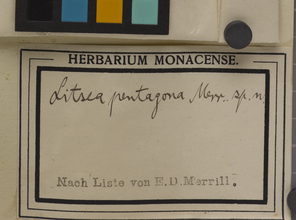 HERBARIUM MONACENSE.
Litsea pentagona Merr. sp. n.
Nach Liste von E.D.Merrill.